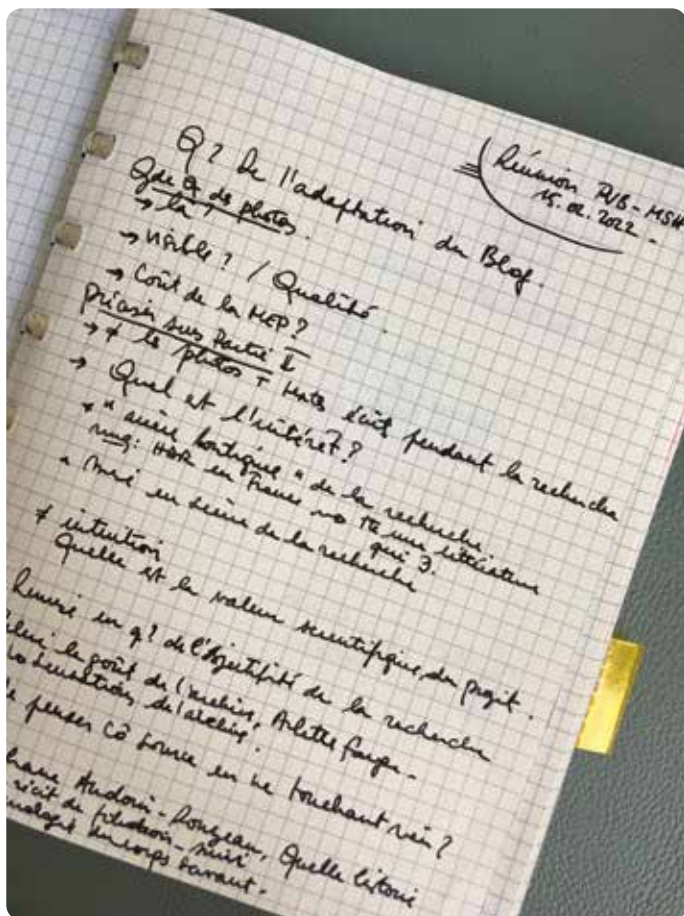 Réunion PUB - MSH
15.02.2022 -
Q? De l'adaptation du Blog.
Qde Q de photos
→ la
→ visible? / Qualité.
→ Coût de la MEP?
préciser sur Partie I
→ + les photos + textes écrits pendant la recherche
→ Quel est l'intérêt?
* "arrière boutique" de la recherche.
en France une littérature
qui ∃.
* mise en scène de la recherche
≠ intuition
Quelle est la valeur scientifique du projet.
Remise en q? de l'objectivité de la recherche
le goût de l'archive, Arlette Farge -
sensations de l'archive.
penser co source en ne touchant rien?
Audoin-Rouzeau, Quelle histoire
récit de filiation
du corps savant.